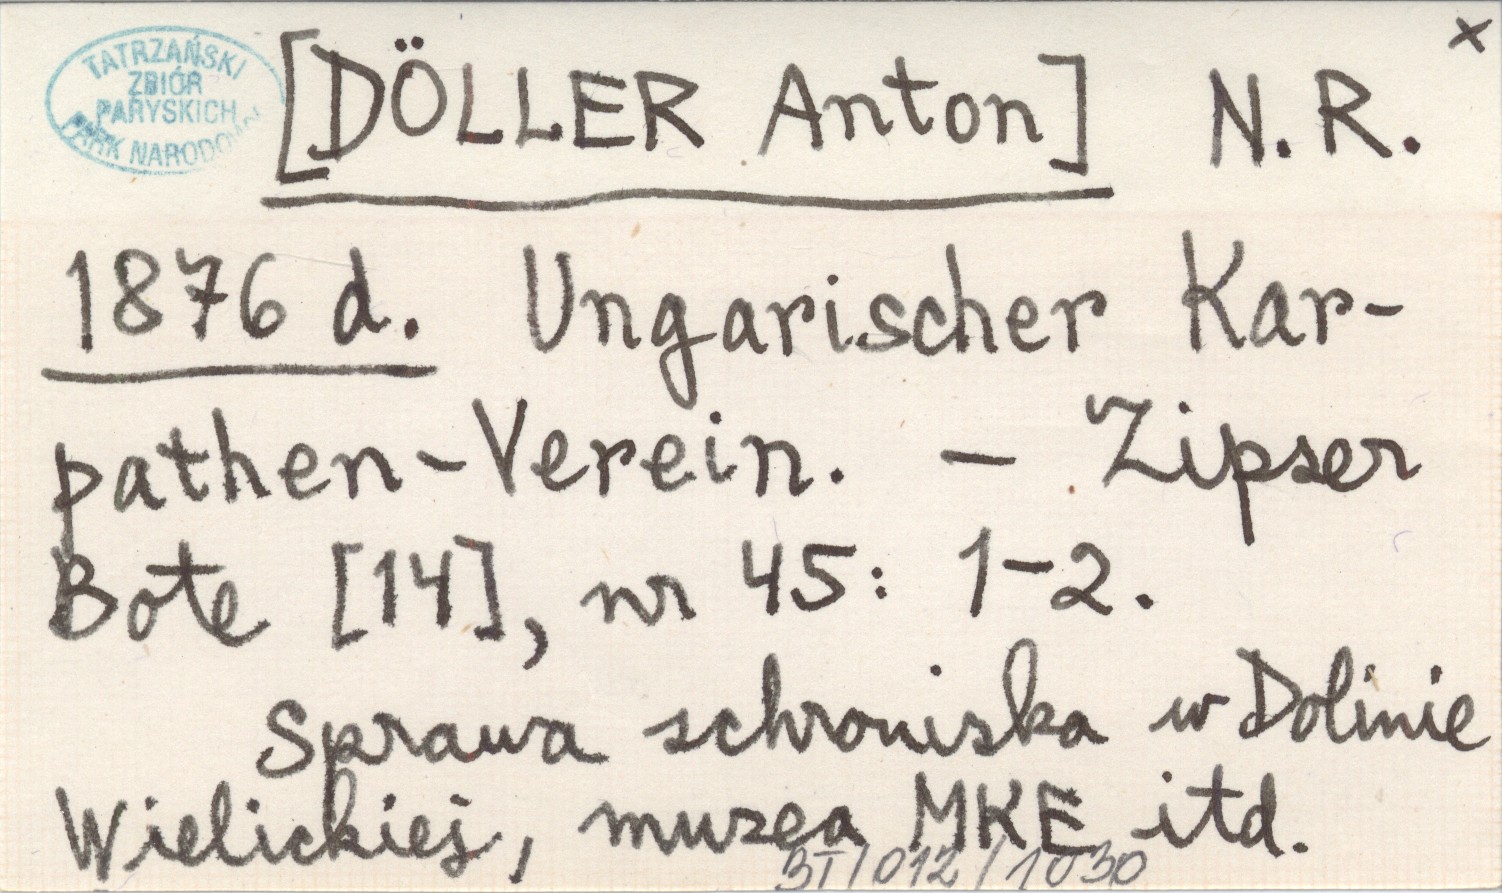 x
TATRZAŃSKI
ZBIÓR
PARYSKICH
PARK NARODOWY
[DÖLLER Anton] N.R.
1876 d. Ungarischer Kar-
pathen-Verein. – Zipser
Bote [14], nr 45: 1-2.
Sprawa schroniska w Dolinie
Wielickiej, muzea MKE itd.
BT/012/1030